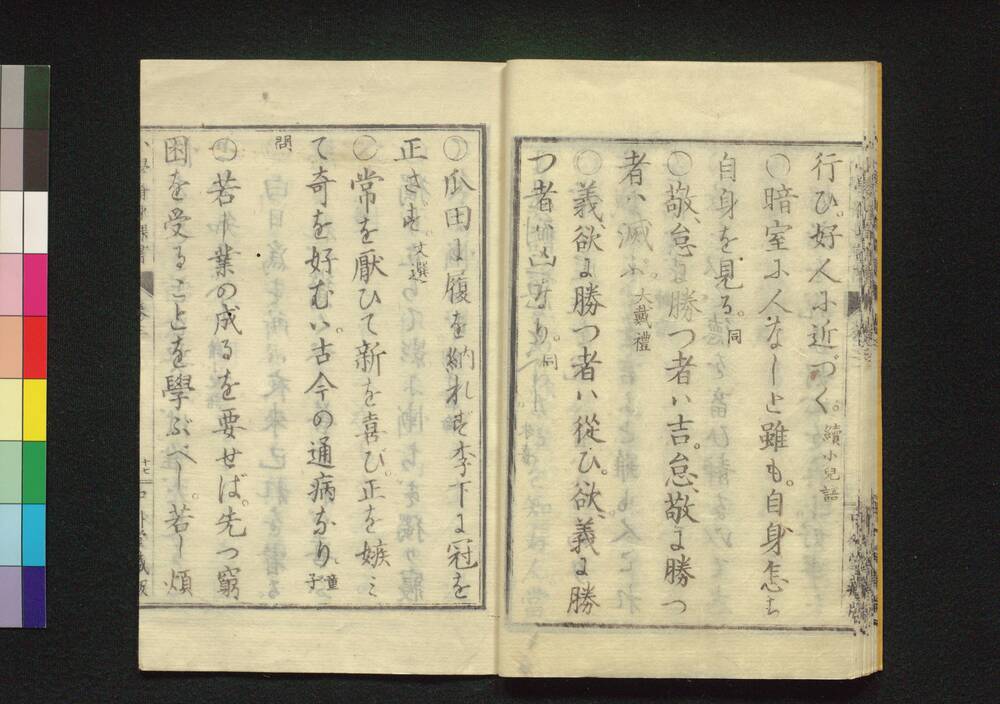 行ひ。好人に近づく。續小兒語
○暗室に人なしと雖も。自身怠ち
自身を見る。同
○敬、怠に勝つ者ハ吉。怠、敬に勝つ
者ハ滅ぶ。大戴禮
○義、欲に勝つ者ハ從ひ。欲、義に勝
つ者ハ凶なり。同
○瓜田に履を納れず李下に冠を
正さず。文選
○常を厭ひて新を喜び。正を嫉み
て奇を好むハ。古今の通病なり。童子
問
○若し業の成るを要せば。先つ窮
困を受ることを學ぶべし。若し煩
十七